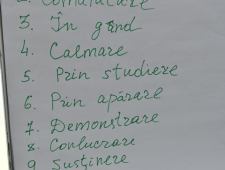 2. Comunicare
3. În gând
4. Calmare
5. Prin studiere
6. Prin apărare
7. Demonstrare
8. Conlucrare
9. Susținere